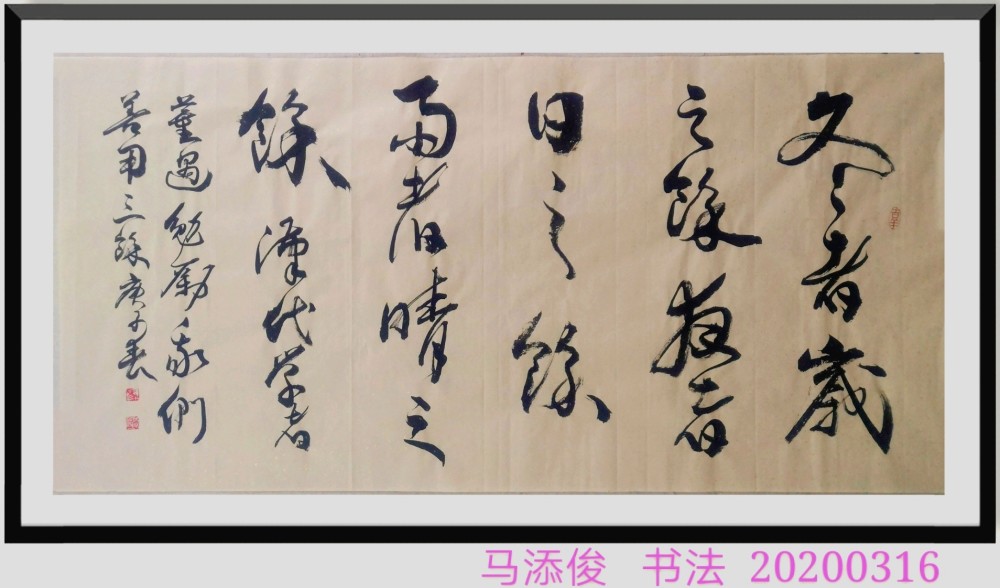 冬者歲
之餘夜者
日之餘
雨者晴之
餘 漢代学者
董遇勉励我們
善用三餘庚子春
马添俊 书法 20200316